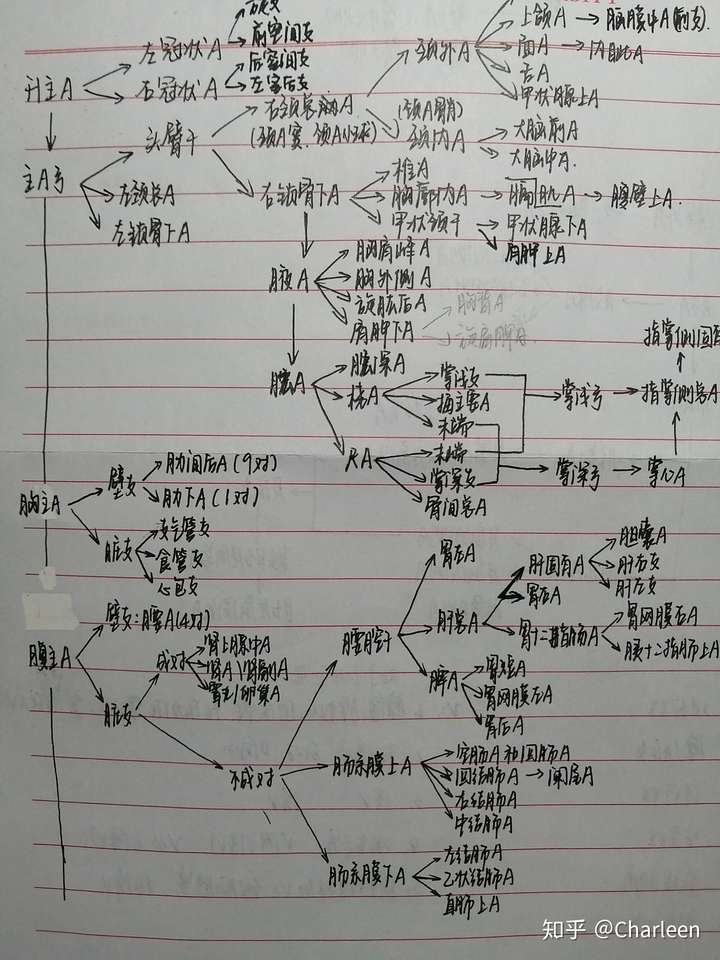 左冠状A
前室间支
升主A
右冠状A
后室间支
左室后支
颈外A
上颌A → 脑膜中A(前支)
面A → 内眦A
舌A
甲状腺上A
主A弓
头臂干
右颈总A
(颈A窦、颈A小球)
颈内A
大脑前A
大脑中A
左颈总A
左锁骨下A
右锁骨下A
椎A
胸廓内A → 膈肌A → 腹壁上A
甲状颈干
甲状腺下A
肩胛上A
腋A
胸肩峰A
胸外侧A
旋肱后A
肩胛下A
胸背A
旋肩胛A
肱A
肱深A
桡A
掌浅支
拇主要A
末端
尺A
末端
掌深支
骨间总A
掌浅弓 → 指掌侧总A
指掌侧固有
掌深弓 → 掌心A
胸主A
壁支
肋间后A(9对)
肋下A(1对)
脏支
支气管支
食管支
心包支
腹主A
壁支:腰A(4对)
脏支
成对
肾上腺中A
肾A
不成对
腹腔干
胃左A
肝总A
肝固有A
胆囊A
肝右支
肝左支
胃右A
胃十二指肠A
胃网膜右A
胰十二指肠上A
脾A
胃短A
胃网膜左A
胃后A
肠系膜上A
空肠A和回肠A
回结肠A → 阑尾A
右结肠A
中结肠A
肠系膜下A
左结肠A
乙状结肠A
直肠上A
知乎 @Charleen